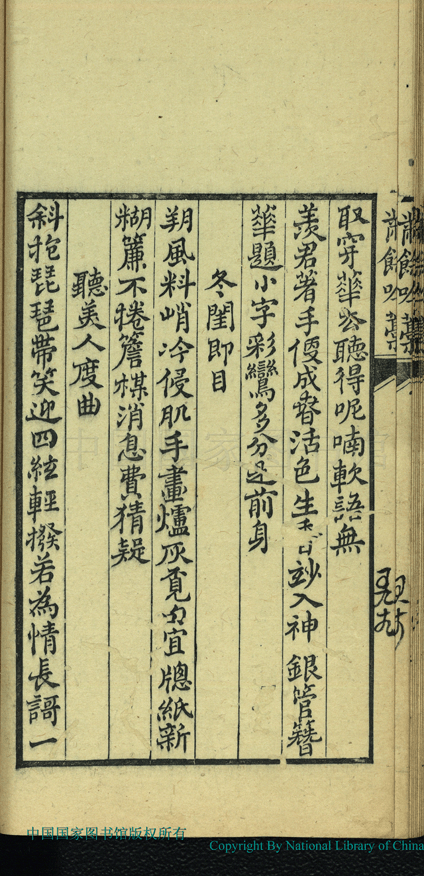 黹餘吟藁
取穿華聽得呢喃軟語無
羨君著手便成春活色生香玅入神銀管簪
華題小字彩鸞多分是前身
冬閨即目
朔風料峭冷侵肌手畫爐灰覓句宜牕紙新
糊簾不捲簷楳消息費猜疑
聽美人度曲
斜抱琵琶帶笑迎四絃輕撥若為情長謌一
中国国家图书馆版权所有
Copyright By National Library of China